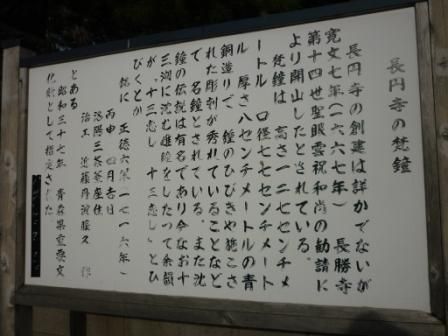 長円寺の梵鐘
長円寺の創建は詳かでないが
寛文七年(一六六七年) 長勝寺
第十四世聖眼雲祝和尚の勧請に
より開山したとされている。
梵鐘は 高さ一二センチメ
ートル 口径七七センチメート
ル 厚さ八センチメートルの青
銅造りで、鐘のひびきや施こさ
れた彫刻が秀れていることなど
で 名鐘とされている。また沈
鐘の伝説は有名であり今なお十
三潟に沈む雄鐘をしたって余韻
が、十三恋し 十三恋しとひ
びくとか
銘に 正徳六年(一七一六年)
丙申 四月吉日
洛陽三条釜座住
治工 近藤丹波藤久 作
とある
昭和三十七年 青森県重要文
化財として指定された。